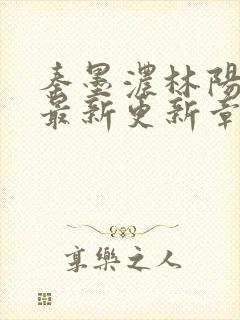 秦墨濃林陽
最新更新章
享樂之人